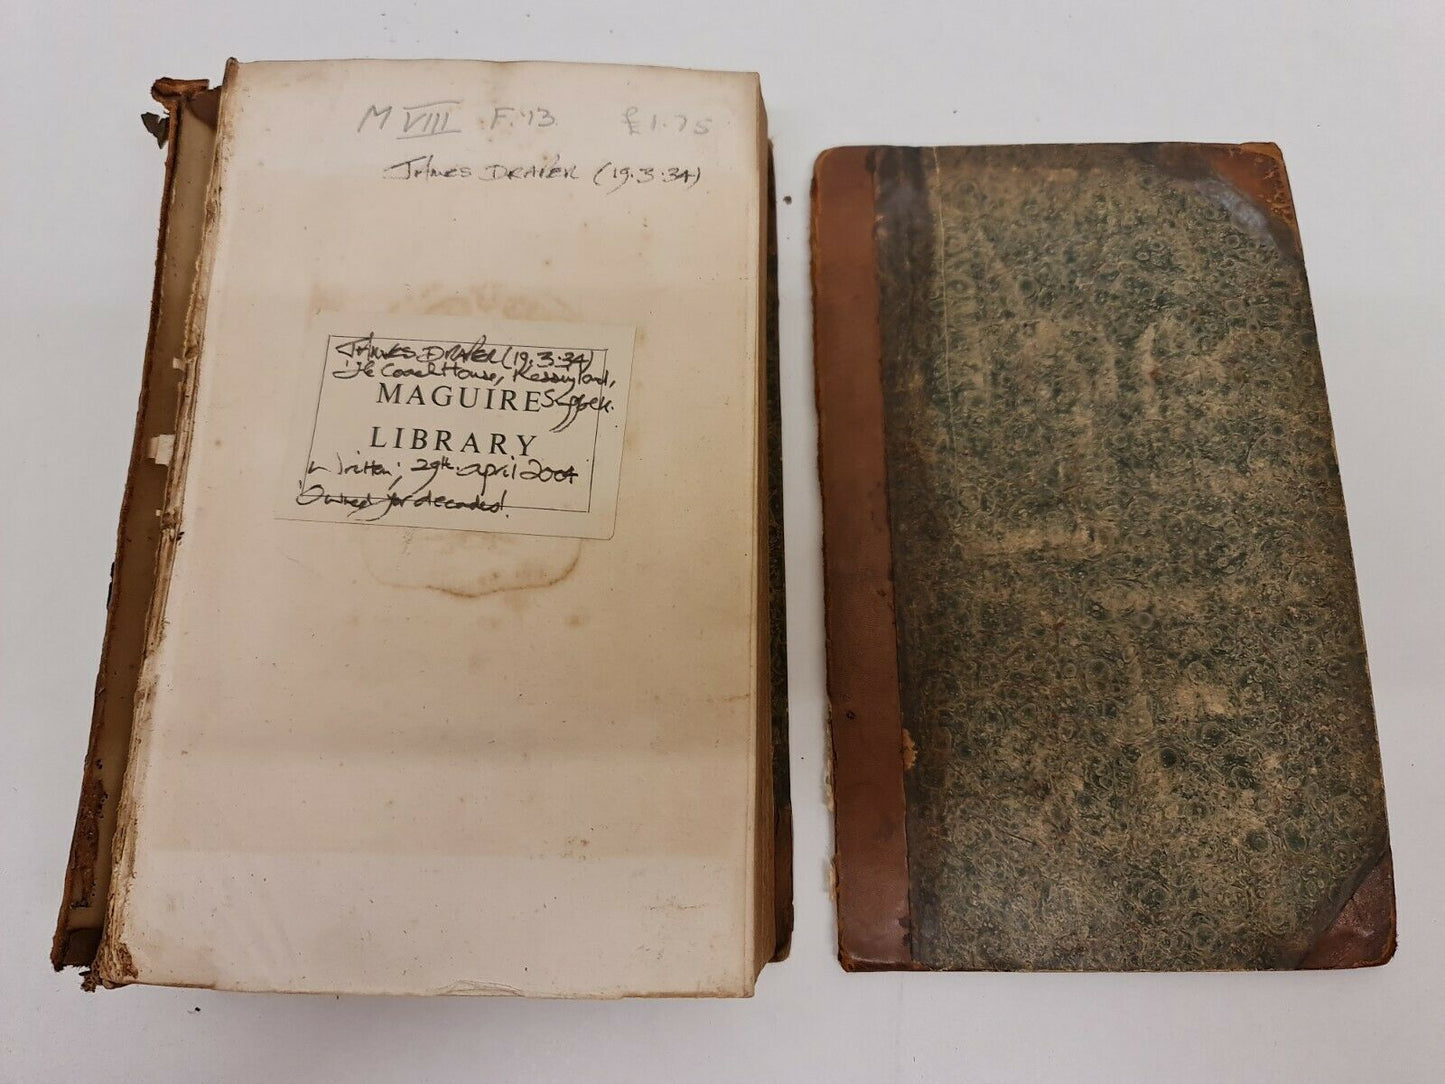 M VIII F.13. £1.75
JAMES DRAPER (19.3.34)
JAMES DRAPER (19.3.34)
The Coach House, Kessingland,
MAGUIRE Suffolk.
LIBRARY
Written; 29th april 2004
Owned for decades!